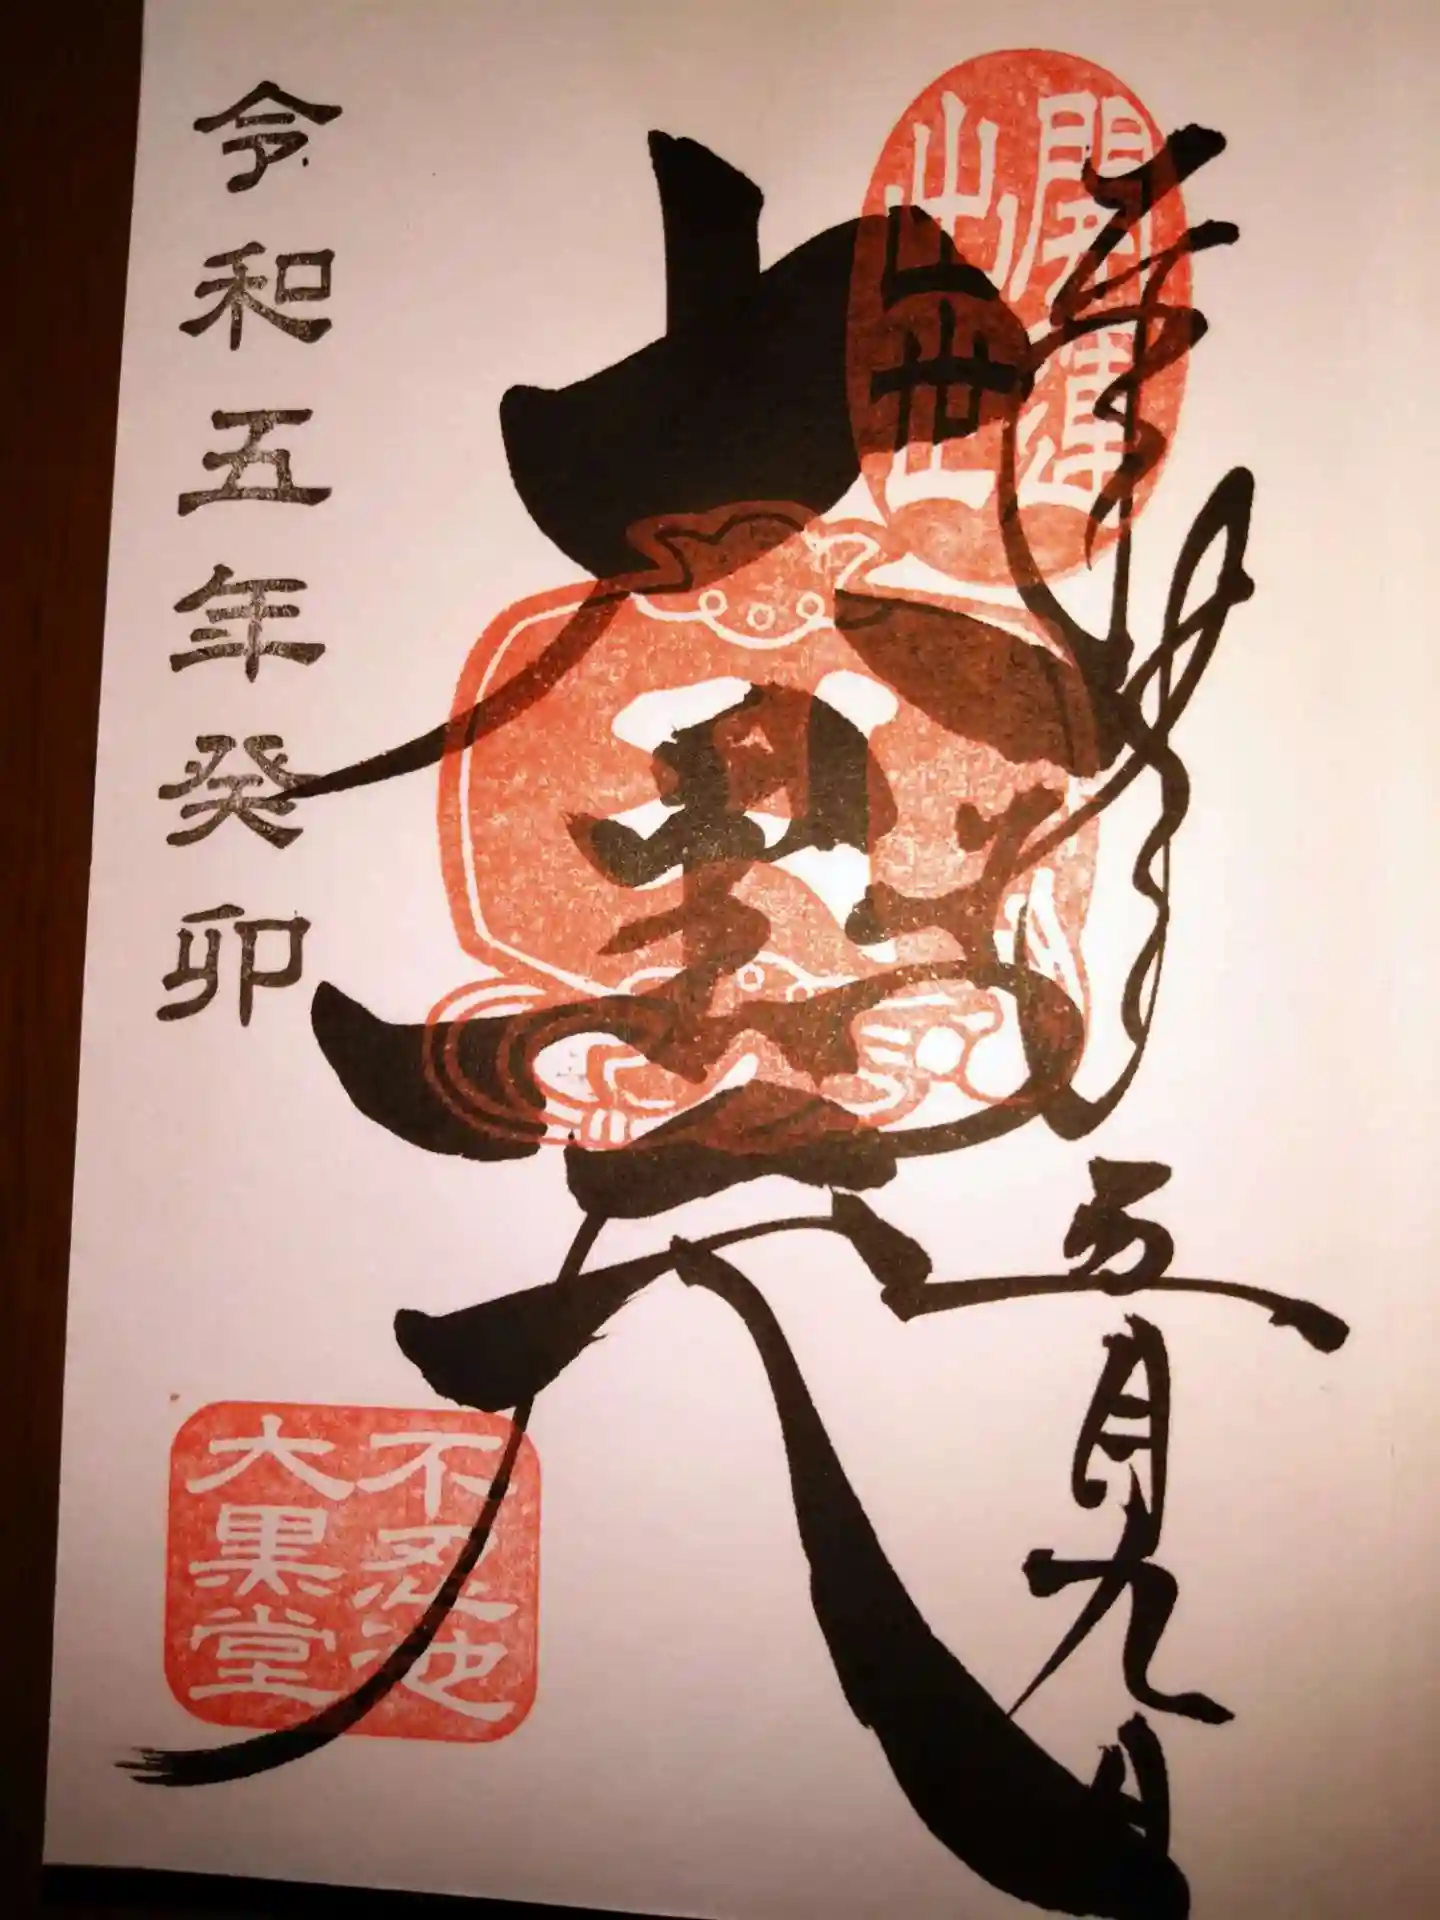 開運
出世
奉拝
五月九日
大黒天
令和五年癸卯
不忍池
大黒堂